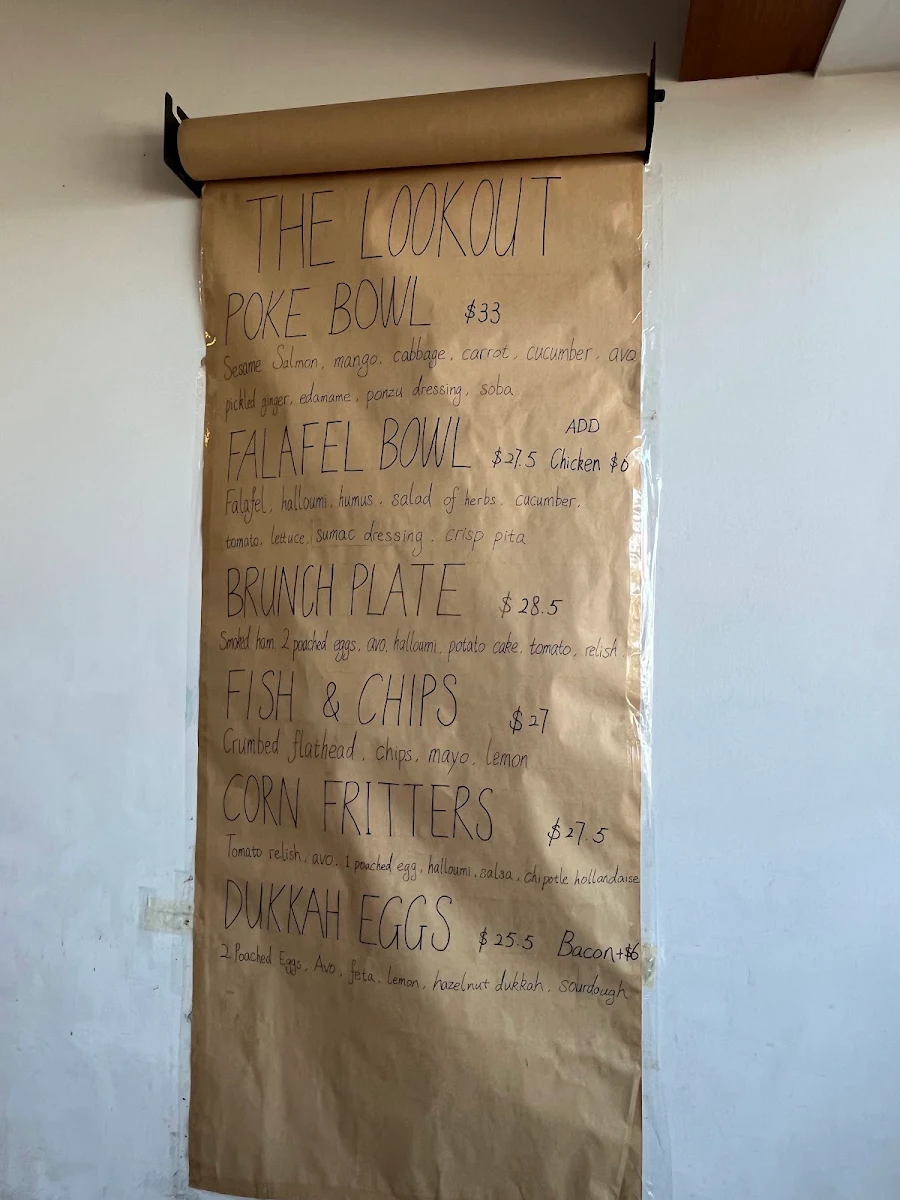 THE LOOKOUT
POKE BOWL $33
Sesame Salmon, mango, cabbage, carrot, cucumber, avo
pickled ginger, edamame, ponzu dressing, soba
ADD
FALAFEL BOWL $27.5 Chicken $6
Falafel, halloumi, humus, salad of herbs, cucumber,
tomato, lettuce, sumac dressing, crisp pita
BRUNCH PLATE $28.5
Smoked ham, 2 poached eggs, avo, halloumi, potato cake, tomato, relish
FISH & CHIPS $27
Crumbed flathead, chips, mayo, lemon
CORN FRITTERS $27.5
Tomato relish, avo, 1 poached egg, halloumi, salsa, chipotle hollandaise
DUKKAH EGGS $25.5 Bacon+$6
2 Poached Eggs, Avo, feta, lemon, hazelnut dukkah, sourdough